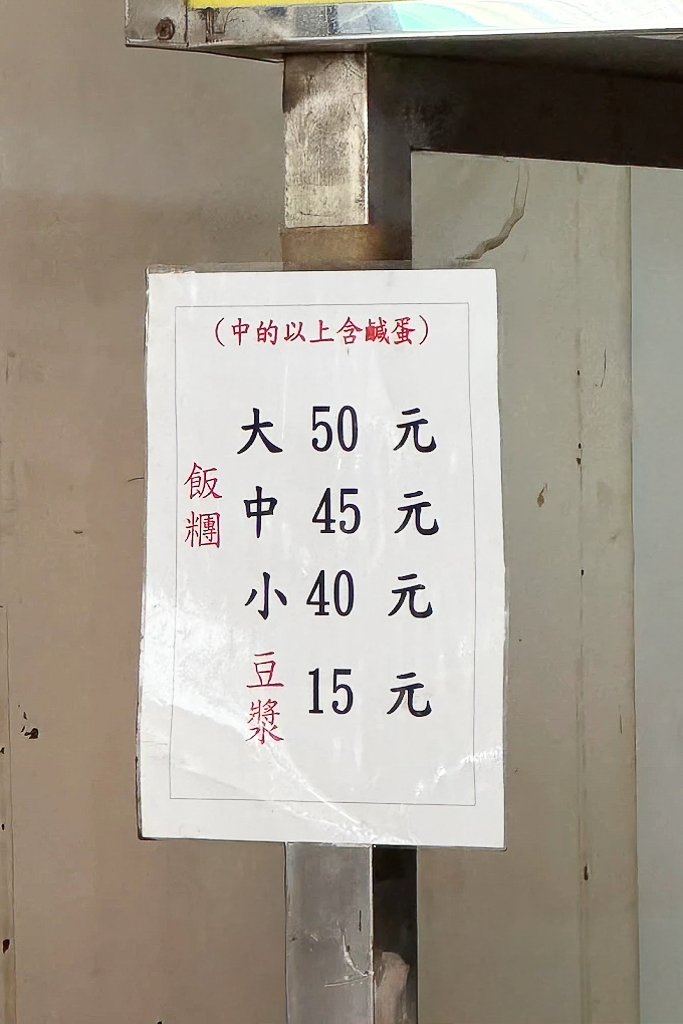 (中的以上含鹹蛋)
飯糰
大 50 元
中 45 元
小 40 元
豆漿 15 元